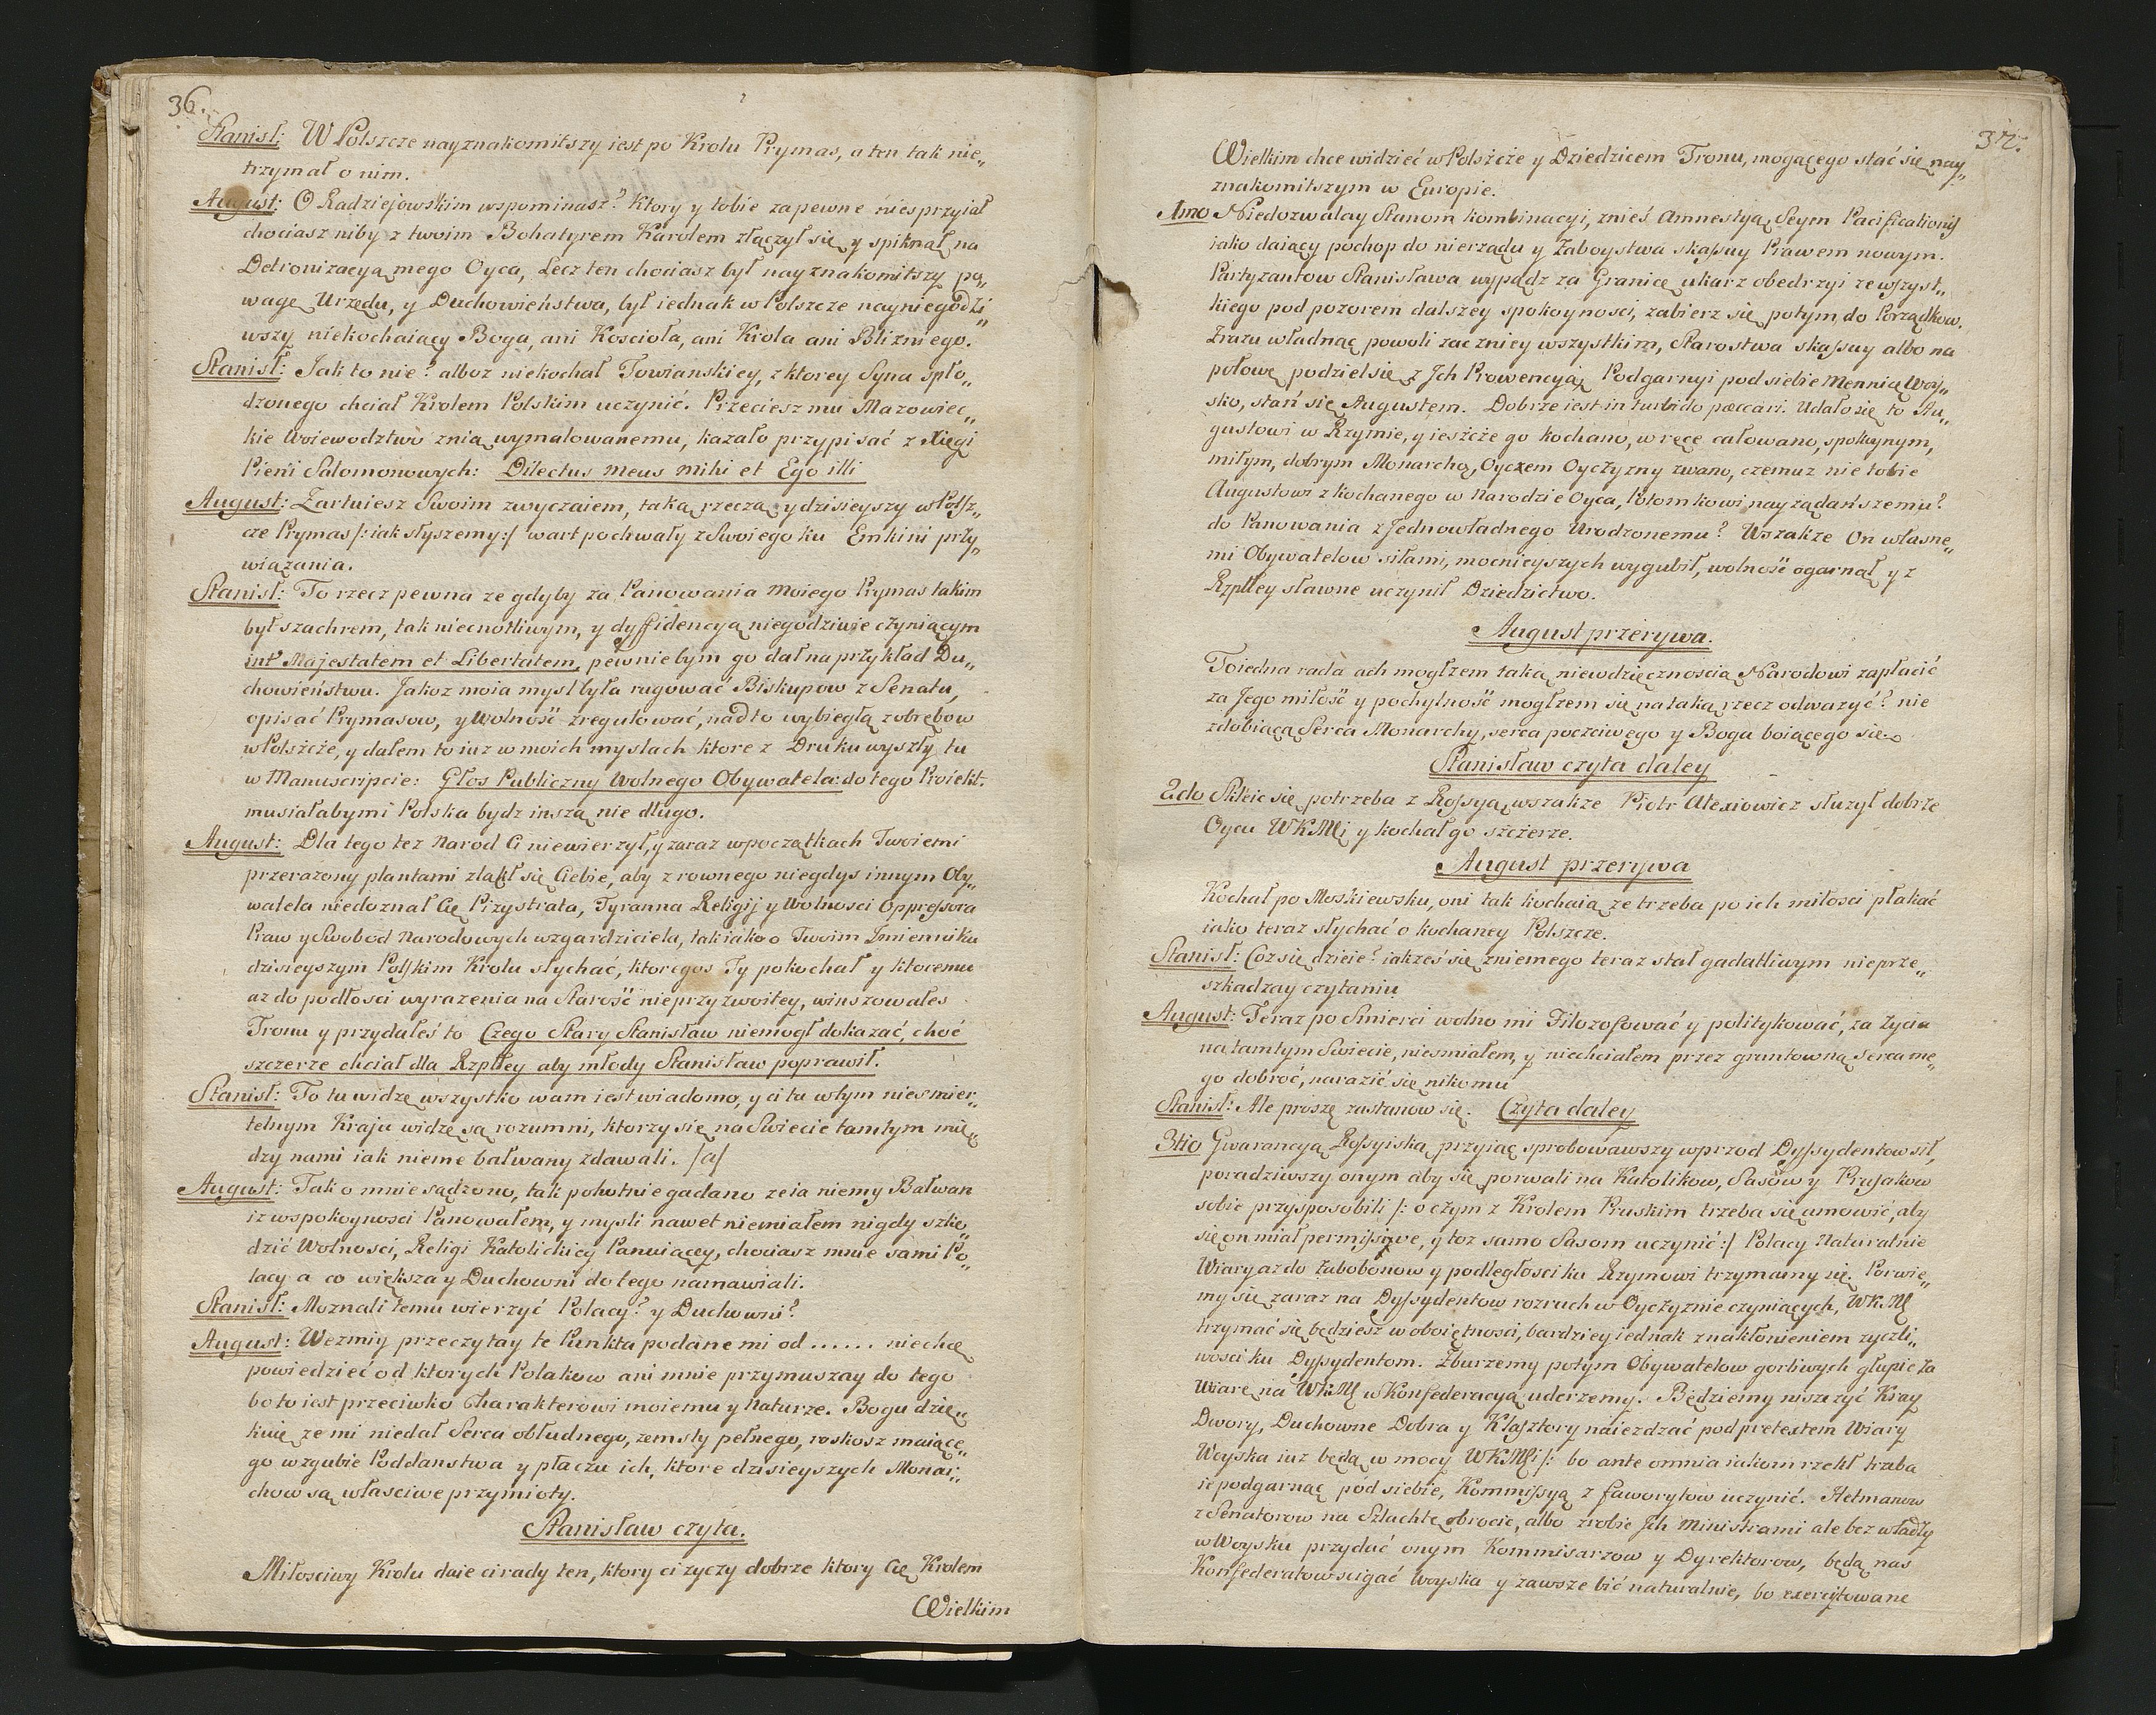 36.
Stanisł: W Polszcze nayznakomitszy iest po Krolu Prymas, a ten tak nie„
trzymał o nim.
August: O Radziejowskim wspominasz? Ktory y tobie zapewne niesprzyiał
chociasz niby z twoim Bohatyrem Karolem złączył się y spiknął na
Detronizacyą mego Oyca, Lecz ten chociasz był nayznakomitszy po„
wagę Urzędu, y Duchowieństwa, był iednak w Polszcze nayniegodzi„
wszy niekochaiący Boga, ani Kosciola, ani Krola ani Blizniego.
Stanisł: Jak to nie? alboz niekochał Towianskiey, z ktorey Syna spło„
dzonego chciał Krolem Polskim uczynić. Przeciesz mu Mazowiec„
kie Woiewodztwo znią wymalowanemu, kazało przypisać z Xięgi
Pieni Salomonowych: Dilectus meus mihi et Ego illi
August: Zartuiesz Swoim zwyczaiem, taką rzeczą y dzisieyszy w Polsz„
cze Prymas /: iak słyszemy:/ wart pochwały z Swoiego ku Emkini przy„
wiązania.
Stanisł: To rzecz pewna ze gdyby za Panowania moiego Prymas takim
był szachrem, tak niecnotliwym, y dyffidencyą niegodziwie czyniącym
int Majestatem et Libertatem, pewnie bym go dał na przykład Du„
chowieństwu. Jakoz moia mysl była rugować Biskupow z Senatu,
opisać Prymasow, y Wolność zregulować, nadto wybiegłą zobrębow
w Polszcze, y dałem to iuz w moich myslach ktore z Druku wyszły, tu
w Manuscripcie: Głos Publiczny Wolnego Obywatela: do tego Proiekt.
musiałaby mi Polska bydz inszą nie długo.
August: Dla tego tez Narod Ci niewierzył, y zaraz w początkach Twoiemi
przerazony plantami zlakł się Ciebie, aby z rownego niegdys innym Oby„
watela niedoznał Cię Pizystrata, Tyranna Religij y Wolnosci Oppressora
Praw y Swobod Narodowych wzgardziciela, tak iako o Twoim Imienniku
dzisieyszym Polskim Krolu słychać, ktoregos Ty pokochał y ktoremu
az do podłosci wyrazenia na Starość nieprzyzwoitey, winszowałes
Tronu y przydałeś to Czego Stary Stanisław niemogł dokazać, choć
szczerze chciał dla Rzpltey aby młody Stanisław poprawił.
Stanisł: To tu widzę wszystko wam iest wiadomo, y ci tu w tym niesmier„
telnym Kraju widzę są rozumni, ktorzy się na Swiecie tamtym mię„
dzy nami iak nieme bałwany zdawali. /a/
August: Tak o mnie sądzono, tak pokątnie gadano ze ia niemy Bałwan
iz w spokoynosci Panowałem, y mysli nawet niemiałem nigdy szko„
dzić Wolnosci, Religi Katolickiey Panuiącey, chociasz mnie sami Po„
lacy a co większa y Duchowni do tego namawiali.
Stanisł: Moznali temu wierzyć Polacy? y Duchowni?
August: Wezmiy przeczytay te Punkta podane mi od ...... niechcę
powiedzieć od ktorych Polakow ani mnie przymuszay do tego
bo to iest przeciwko Charakterowi moiemu y Naturze. Bogu dzię„
kuię ze mi niedał Serca obłudnego, zemsty pełnego, roskosz maiące„
go w zgubie Poddanstwa y płaczu ich, ktore dzisieyszych Monar„
chow są własciwe przymioty.
Stanisław czyta.
Miłosciwy Krolu daie ci rady ten, ktory ci zyczy dobrze ktory Cię Krolem
Wielkim
37.
Wielkim chce widzieć w Polszcze y Dziedzicem Tronu, mogącego stać się nay„
znakomitszym w Europie.
1mo Niedozwalay Stanom kombinacyi, znieś Amnestyą, Seym Pacificationis
iako daiący pochop do nierządu y Zaboystwa skassuy Prawem nowym.
Partyzantow Stanisława wypądz za Granicę ukarz obedrzyi ze wszyst„
kiego pod pozorem dalszey spokoynosci, zabierz się potym do Porządkow.
Zrazu władnąć powoli zaczniey wszystkim, Starostwa skassuy albo na
połowę podziel się z Jch Prowencyią, Podgarnyi pod siebie Mennicę Woy„
sko, stań się Augustem. Dobrze iest in turbido pœccari. Udało się to Au„
gustowi w Rzymie, y ieszcze go kochano, w ręce całowano, spokoynym,
miłym, dobrym Monarchą, Oyczem Oyczyzny zwano, czemuz nie tobie
Augustowi z kochanego w Narodzie Oyca, Potomkowi nayządańszemu?
do Panowania z Jednowładnego Urodzonemu? Wszakze On własne„
mi Obywatelow siłami, mocnieyszych wygubił, wolność ogarnął y z
Rzpltey sławne uczynił Dziedzictwo.
August przerywa.
To iedna rada ach mogłzem taką niewdzięcznoscią Narodowi zapłacić
za Jego miłość y pochylność mogłzem się na taką rzecz odwazyć? nie
zdobiącą Serca Monarchy, serca poczciwego y Boga boiącego się.
Stanisław czyta daley
2do Skleic się potrzeba z Rossyą, wszakze Piotr Alexiowicz słuzył dobrze
Oycu WKMci y kochał go szczerze.
August przerywa
Kochał po Moskiewsku, oni tak kochaią ze trzeba po ich miłosci płakać
iako teraz słychać o kochaney Polszcze.
Stanisł: Coz się dzieie? iakześ się z niemego teraz stał gadatliwym nieprze„
szkadzay czytaniu
August: Teraz po Smierci wolno mi Filozofować y politykować, za zycia
na tamtym Swiecie, niesmiałem, y niechciałem przez gruntowną serca me„
go dobroć, narazić się nikomu
Stanisł: Ale proszę zastanow się. Czyta daley
3tio Gwarancyą Rossyiską przyiąć sprobowawszy wprzod Dyssydentow sił,
poradziwszy onym aby się porwali na Katolikow, Sasow y Prusakow
sobie przysposobili /: o czym z Krolem Pruskim trzeba się umowić, aby
się on miał permissive, y toz samo Sasom uczynić :/ Polacy Naturalnie
Wiary az do Zabobonow y podległosci ku Rzymowi trzymamy się. Porwie„
my się zaraz na Dyssydentow rozruch w Oyczyznie czyniących, WKM
trzymać się będziesz w oboiętnosci, bardziey iednak z nakłonieniem zyczli„
wosci ku Dyssydentom. Zburzemy potym Obywatelow gorliwych głupie za
Wiarę na WKM w Konfederacyą uderzemy. Będziemy niszczyć Kray
Dwory, Duchowne Dobra y Klasztory naiezdzać pod pretextem Wiary
Woyska iuz będą w mocy WKMci /: bo ante omnia iakom rzekł trzeba
ie podgarnąć pod siebie, Kommissyą z faworytow uczynić. Hetmanow
z Senatorow na Szlachtę obrocić, albo zrobić Jch Ministrami ale bez władzy
w Woysku przydać onym Kommisarzow y Dyrektorow, będą nas
Konfederatow scigać Woyska y zawsze bić naturalnie, bo exercytowane